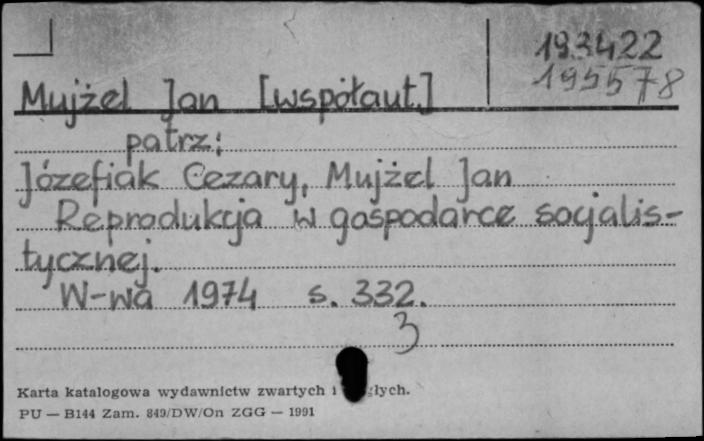 193422
195578
Mujżel Jan [współaut.]
patrz:
Józefiak Cezary, Mujżel Jan
Reprodukcja w gospodarce socjalis-
tycznej.
W-wa 1974 s. 332.
3
Karta katalogowa wydawnictw zwartych i
PU — B144 Zam. 849/DW/On ZGG — 1991